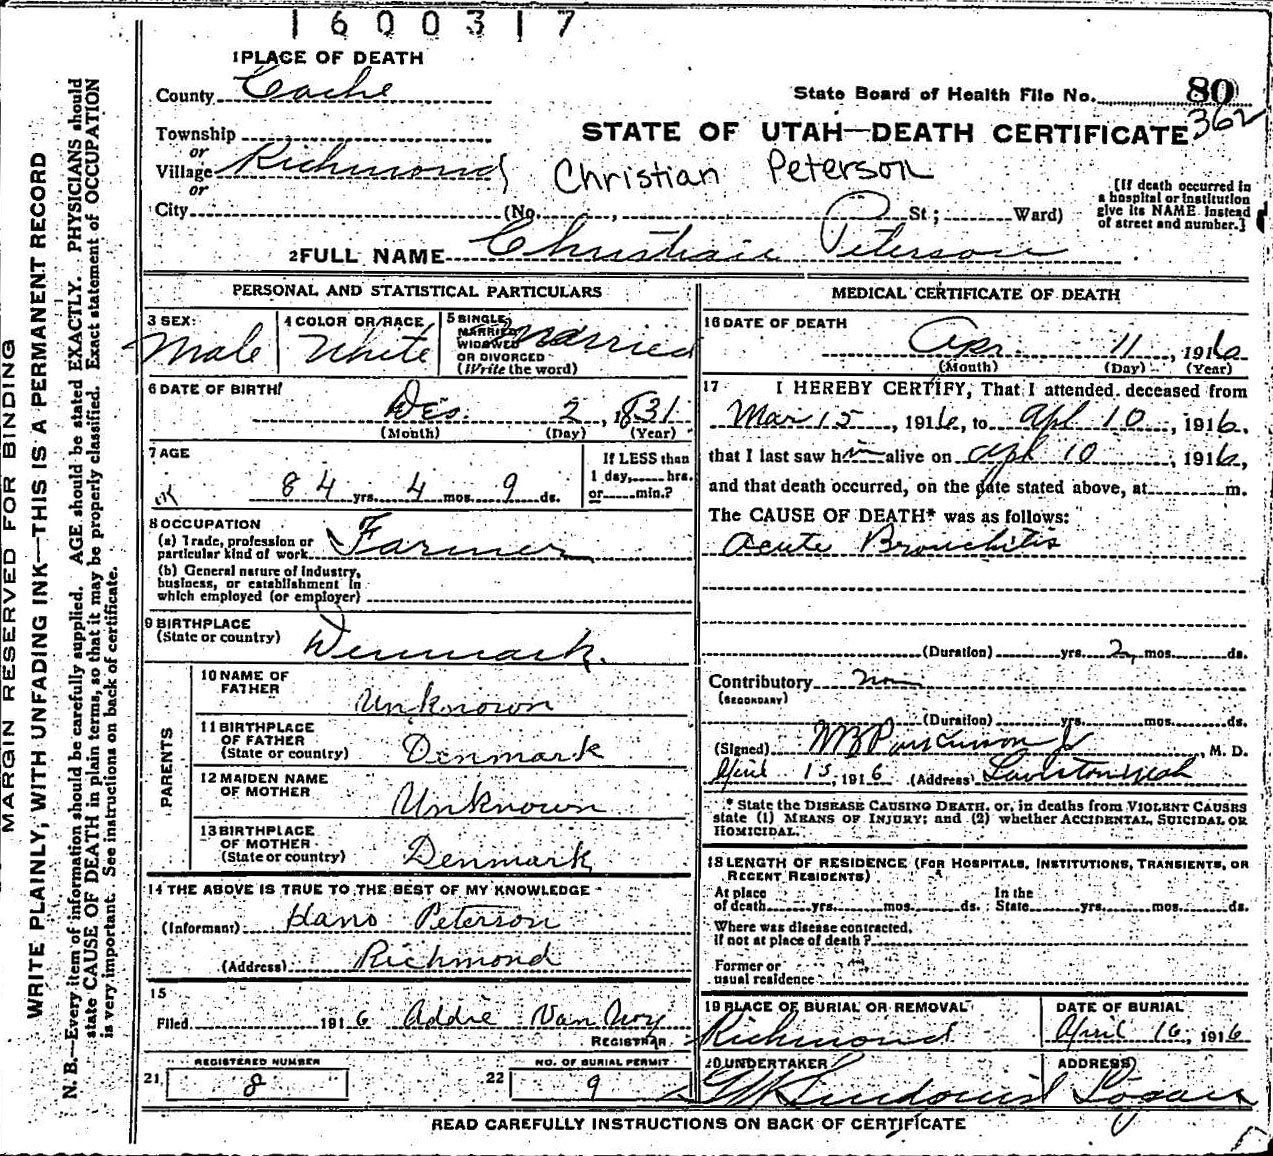 1600317
1 PLACE OF DEATH
County Cache
State Board of Health File No. 80
362
Township
STATE OF UTAH—DEATH CERTIFICATE
or
Village Richmond
Christian Peterson
or
City (No. , St.; Ward)
[If death occurred in a hospital or institution give its NAME instead of street and number.]
2 FULL NAME Christian Peterson
PERSONAL AND STATISTICAL PARTICULARS
3 SEX: Male
4 COLOR OR RACE White
5 SINGLE, MARRIED WIDOWED OR DIVORCED (Write the word) Married
6 DATE OF BIRTH
Dec. 2, 1831
(Month) (Day) (Year)
7 AGE
84 yrs. 4 mos. 9 ds.
If LESS than 1 day, hrs. or min.?
8 OCCUPATION
(a) Trade, profession or particular kind of work Farmer
(b) General nature of industry, business, or establishment in which employed (or employer)
9 BIRTHPLACE
(State or country) Denmark.
PARENTS
10 NAME OF FATHER Unknown
11 BIRTHPLACE OF FATHER (State or country) Denmark
12 MAIDEN NAME OF MOTHER Unknown
13 BIRTHPLACE OF MOTHER (State or country) Denmark
14 THE ABOVE IS TRUE TO THE BEST OF MY KNOWLEDGE
(Informant) Hans Peterson
(Address) Richmond
15
Filed 1916 Addie Van Noy
REGISTRAR
REGISTERED NUMBER
21 8
NO. OF BURIAL PERMIT
22 9
MEDICAL CERTIFICATE OF DEATH
16 DATE OF DEATH
Apr. 11, 1916
(Month) (Day) (Year)
17 I HEREBY CERTIFY, That I attended deceased from
Mar 15, 1916, to Apl 10, 1916,
that I last saw him alive on Apl 10, 1916,
and that death occurred, on the date stated above, at m.
The CAUSE OF DEATH* was as follows:
Acute Bronchitis
(Duration) yrs. 2 mos. ds.
Contributory
(SECONDARY)
(Duration) yrs. mos. ds.
(Signed) W B Parkinson Jr, M. D.
April 15, 1916 (Address) Lewiston Utah
* State the DISEASE CAUSING DEATH, or, in deaths from VIOLENT CAUSES
state (1) MEANS OF INJURY; and (2) whether ACCIDENTAL, SUICIDAL OR
HOMICIDAL.
18 LENGTH OF RESIDENCE (FOR HOSPITALS, INSTITUTIONS, TRANSIENTS, OR
RECENT RESIDENTS)
At place of death yrs. mos. ds. In the State yrs. mos. ds.
Where was disease contracted,
if not at place of death?
Former or
usual residence
19 PLACE OF BURIAL OR REMOVAL Richmond
DATE OF BURIAL April 16, 1916
20 UNDERTAKER Lindquist
ADDRESS Logan
READ CAREFULLY INSTRUCTIONS ON BACK OF CERTIFICATE
MARGIN RESERVED FOR BINDING
WRITE PLAINLY, WITH UNFADING INK—THIS IS A PERMANENT RECORD
N. B.—Every item of information should be carefully supplied. AGE should be stated EXACTLY. PHYSICIANS should
state CAUSE OF DEATH in plain terms, so that it may be properly classified. Exact statement of OCCUPATION
is very important. See instructions on back of certificate.